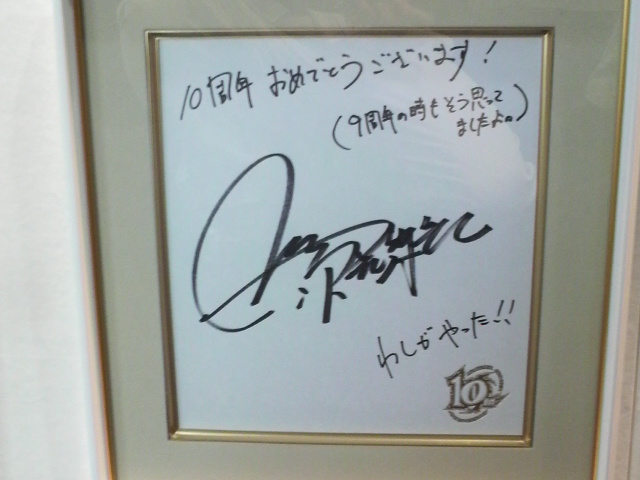 10周年 おめでとうございます!
(9周年の時もそう思って
ましたよ。)
わしがやった!!
10